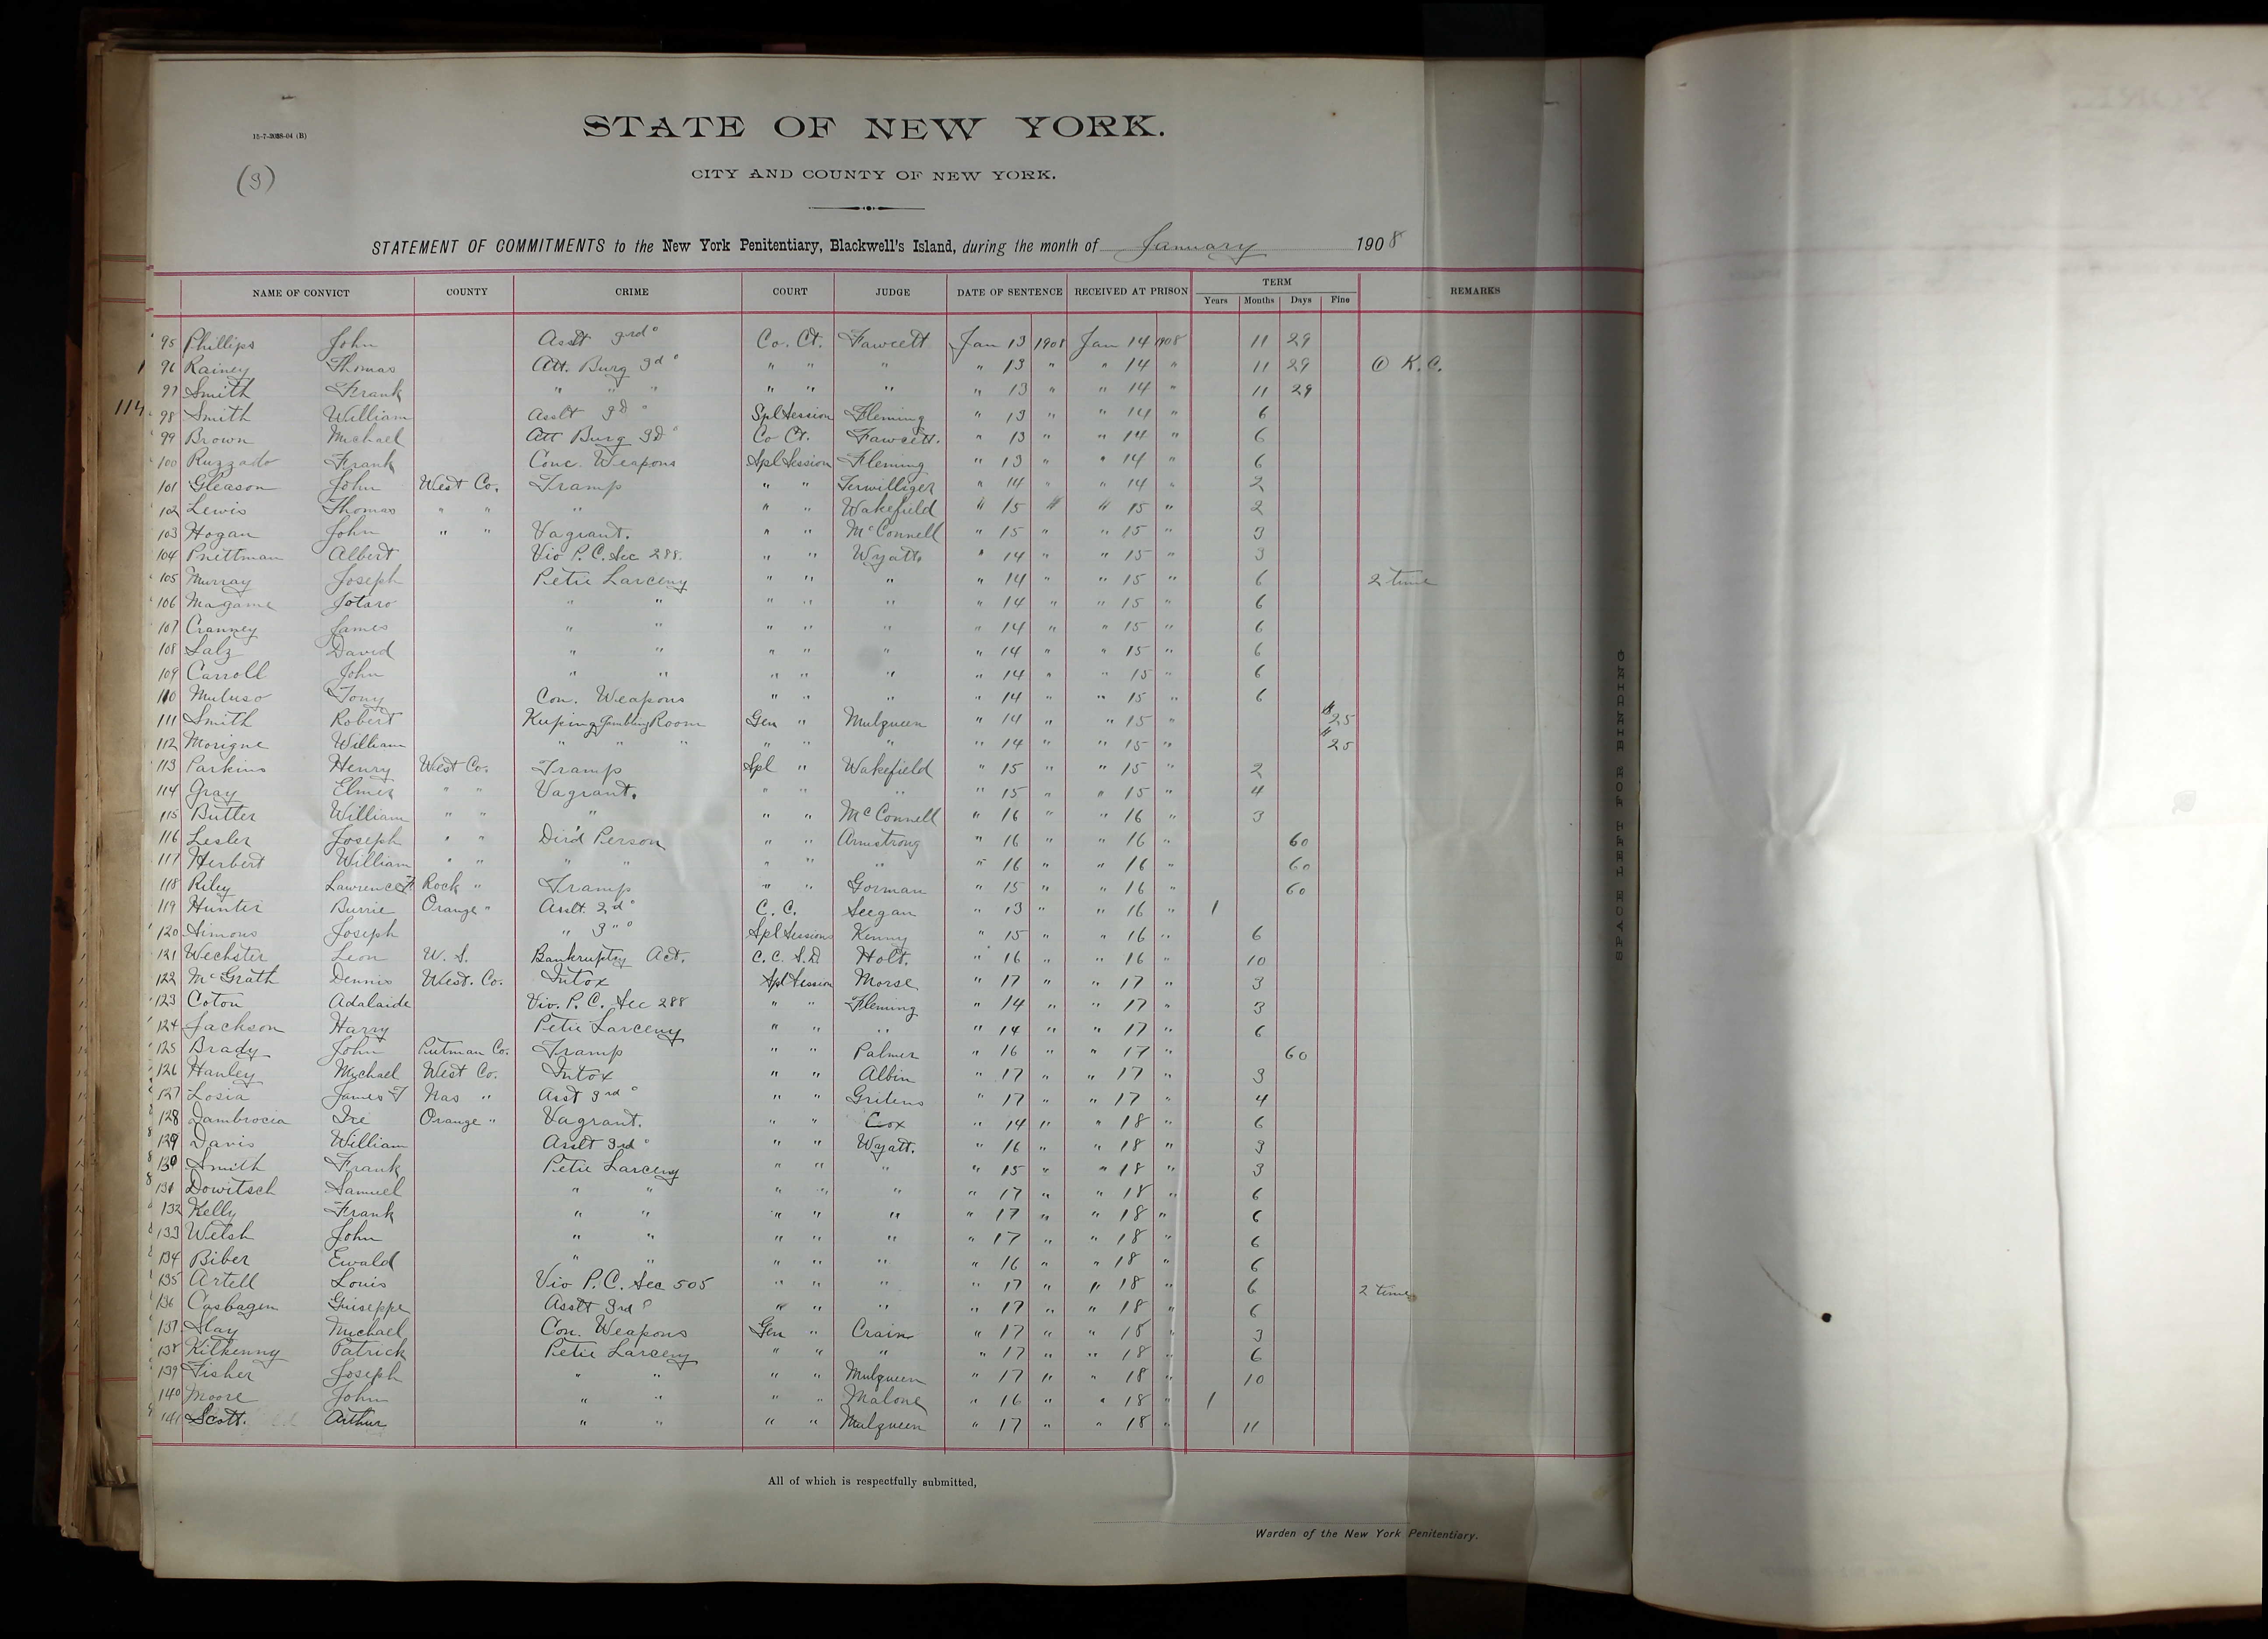 15-7-2038-04 (B)
STATE OF NEW YORK.
(3)
CITY AND COUNTY OF NEW YORK.
STATEMENT OF COMMITMENTS to the New York Penitentiary, Blackwell's Island, during the month of January 1908
NAME OF CONVICT COUNTY CRIME COURT JUDGE DATE OF SENTENCE RECEIVED AT PRISON TERM REMARKS
Years Months Days Fine
95 Phillips John Asslt 3rd° Co. Ct. Fawcett Jan 13 1908 Jan 14 1908 11 29
96 Rainey Thomas Att. Burg 3d° " " " " 13 " " 14 " 11 29 ① K.C.
97 Smith Frank " " " " " " " 13 " " 14 " 11 29
114
98 Smith William Asslt 3d ° Spl Session Fleming " 13 " " 14 " 6
99 Brown Michael Att Burg 3d° Co Ct. Fawcett. " 13 " " 14 " 6
100 Ruzzado Frank Conc. Weapons Spl Session Fleming " 13 " " 14 " 6
101 Gleason John West Co. Tramp " " Terwilliger " 14 " " 14 " 2
102 Lewis Thomas " " " " " Wakefield " 15 " " 15 " 2
103 Hogan John " " Vagrant. " " McConnell " 15 " " 15 " 3
104 Prettman Albert Vio P.C. Sec 288. " " Wyatt " 14 " " 15 " 3
105 Murray Joseph Petit Larceny " " " " 14 " " 15 " 6 2 time
106 Magame Jotaro " " " " " " 14 " " 15 " 6
107 Cranney James " " " " " " 14 " " 15 " 6
108 Salz David " " " " " " 14 " " 15 " 6
109 Carroll John " " " " " " 14 " " 15 " 6
110 Muluso Tony Con. Weapons " " " " 14 " " 15 " 6
111 Smith Robert Keeping Gambling Room Gen " Mulqueen " 14 " " 15 " $25
112 Morigne William " " " " " " " 14 " " 15 " $25
113 Parkins Henry West Co. Tramp Spl " Wakefield " 15 " " 15 " 2
114 Gray Elmer " " Vagrant. " " " " 15 " " 15 " 4
115 Butler William " " " " " McConnell " 16 " " 16 " 3
116 Lesler Joseph " " Dis'd Person " " Armstrong " 16 " " 16 " 60
117 Herbert William " " " " " " " " 16 " " 16 " 60
118 Riley Lawrence F Rock " Tramp " " Gorman " 15 " " 16 " 60
119 Hunter Burrie Orange " Asslt. 2d° C. C. Seegan " 13 " " 16 " 1
120 Simons Joseph " 3"° Spl Sessions Kenny " 15 " " 16 " 6
121 Wechster Leon U. S. Bankruptcy Act. C. C. S.D. Holt. " 16 " " 16 " 10
122 McGrath Dennis West. Co. Intox Spl Session Morse " 17 " " 17 " 3
123 Coton Adalaide Vio. P. C. Sec 288 " " Fleming " 14 " " 17 " 3
124 Jackson Harry Petit Larceny " " " " 14 " " 17 " 6
125 Brady John Putman Co. Tramp " " Palmer " 16 " " 17 " 60
126 Hanley Michael West Co. Intox " " Albin " 17 " " 17 " 3
127 Losia James F Nas " Asst 3rd° " " Gritens " 17 " " 17 " 4
128 Zambrocia Ire Orange " Vagrant. " " Cox " 14 " " 18 " 6
129 Davis William Asslt 3rd° " " Wyatt. " 16 " " 18 " 3
130 Smith Frank Petit Larceny " " " " 15 " " 18 " 3
131 Dowitsch Samuel " " " " " " 17 " " 18 " 6
132 Kelly Frank " " " " " " 17 " " 18 " 6
133 Welsh John " " " " " " 17 " " 18 " 6
134 Biber Ewald " " " " " " 16 " " 18 " 6
135 Artell Louis Vio P.C. Sec 505 " " " " 17 " " 18 " 6 2 time
136 Casbagen Guiseppe Asslt 3rd ° " " " " 17 " " 18 " 6
137 Slay Michael Con. Weapons Gen " Crain " 17 " " 18 " 3
138 Kilkenny Patrick Petit Larceny " " " " 17 " " 18 " 6
139 Fisher Joseph " " " " Mulqueen " 17 " " 18 " 10
140 Moore John " " " " Malone " 16 " " 18 " 1
141 Scott. Arthur " " " " Mulqueen " 17 " " 18 " 11
All of which is respectfully submitted,
Warden of the New York Penitentiary.
SPACE LEFT FOR BINDING